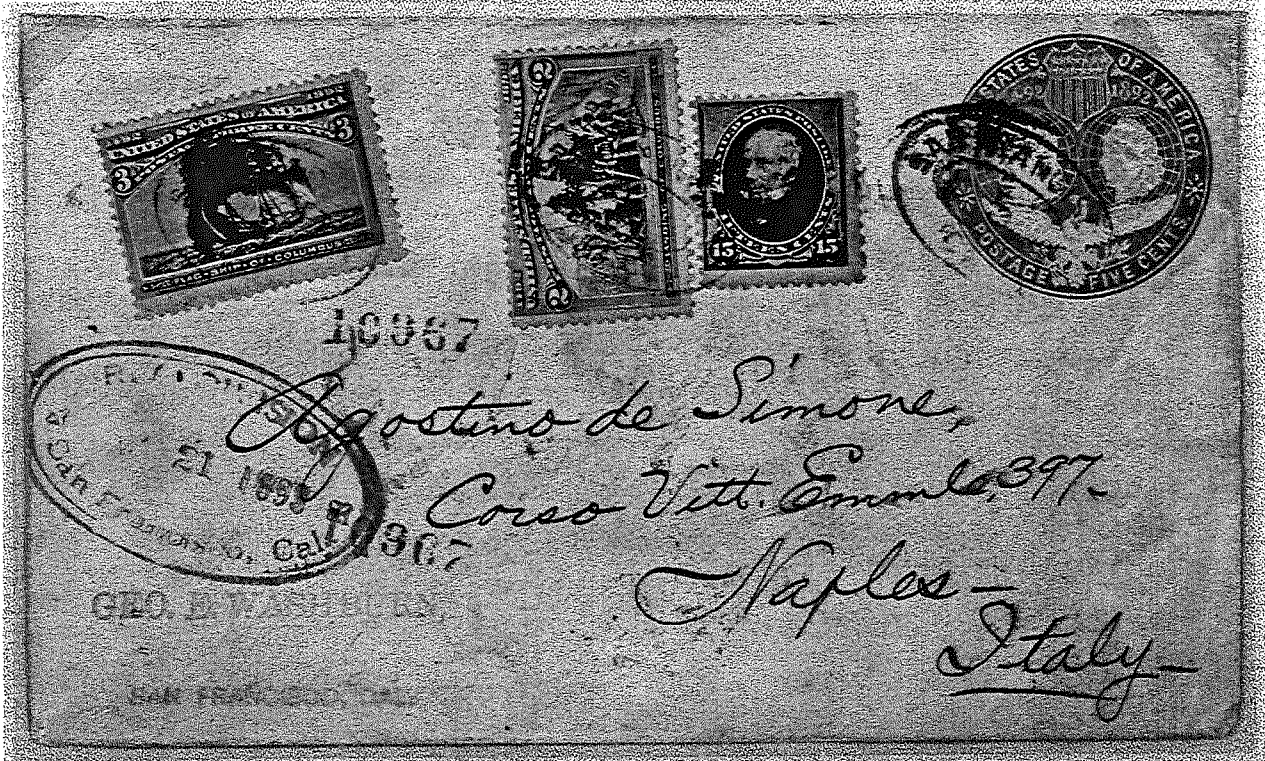 UNITED STATES OF AMERICA
3 3
FLAG SHIP OF COLUMBUS
2 2
15 15
STATES OF AMERICA
1492 1892
POSTAGE FIVE CENTS
SAN FRANC
10967
21 1893
San Francisco, Cal.
Agostino de Simone,
Corso Vitt. Emmle, 397-
Naples -
Italy -
GEO.
SAN FRANCISCO, CAL.